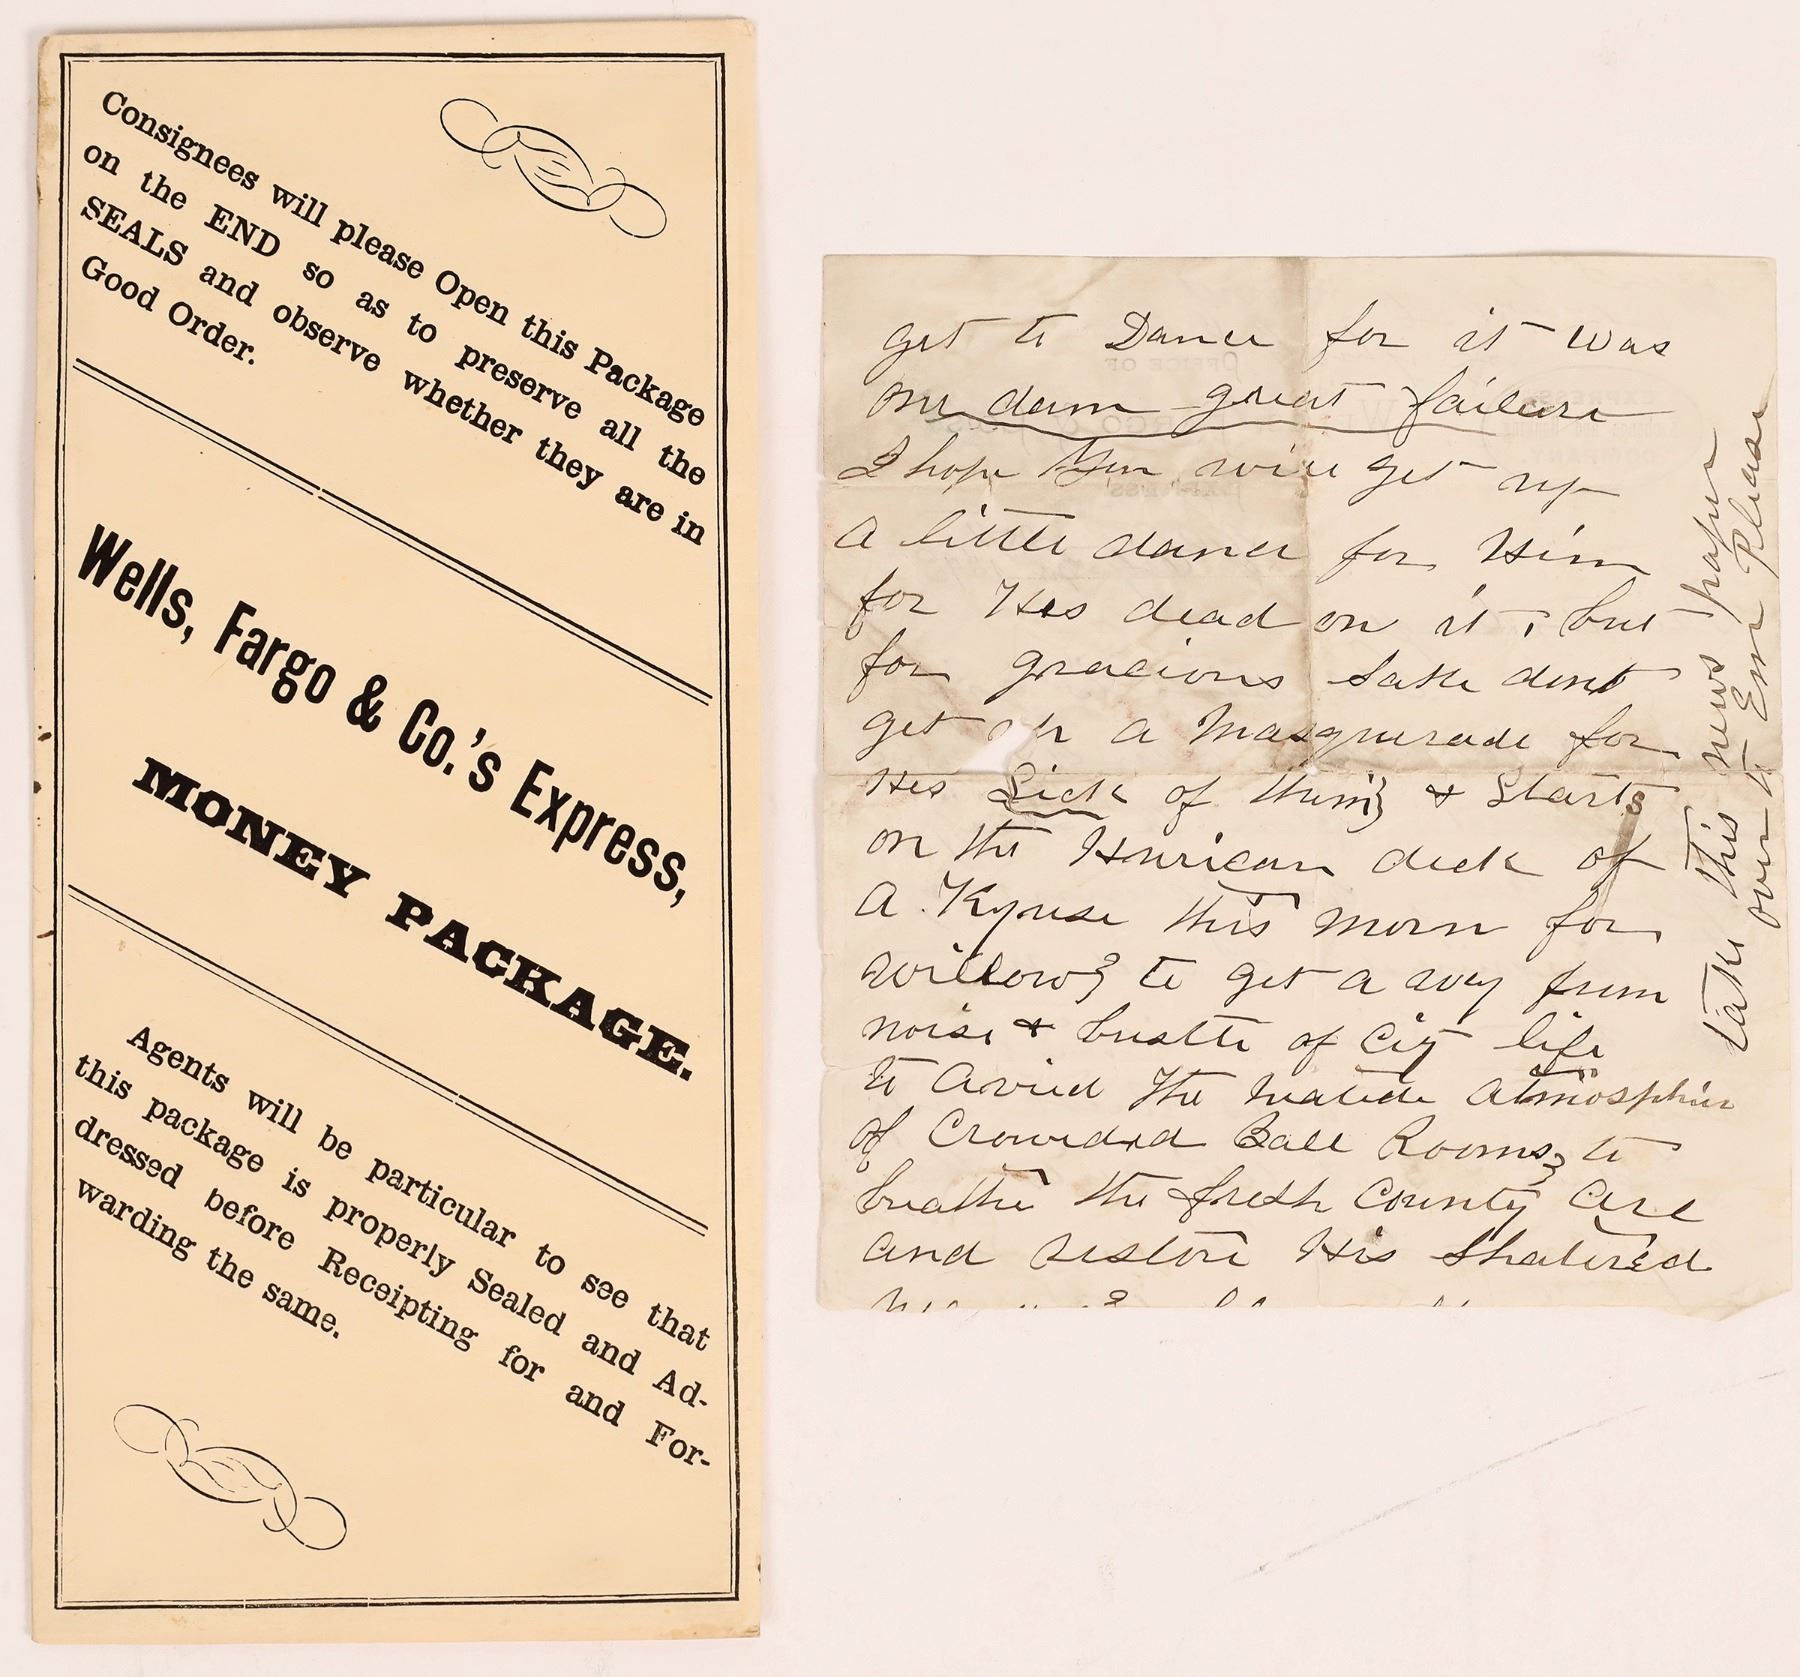 Consignees will please Open this Package
on the END so as to preserve all the
SEALS and observe whether they are in
Good Order.
Wells, Fargo & Co.'s Express,
MONEY PACKAGE.
Agents will be particular to see that
this package is properly Sealed and Ad-
dressed before Receipting for and For-
warding the same.
get to Dance for it was
one dam great failure
I hope You will get up
a little dance for Him
for Hes dead on it, but
for gracious sake dont
get up a Masquerade for
Hes Sick of them, & Starts
on the Hurican deck of
a Kyuse this morn for
Willows to get a way from
noise & bustle of City life
to Avoid the atmosphier
of Crowded Ball Rooms, to
breathe the fresh County are
and restore His Shatered
take this news paper
over to Em Please
OFFICE OF